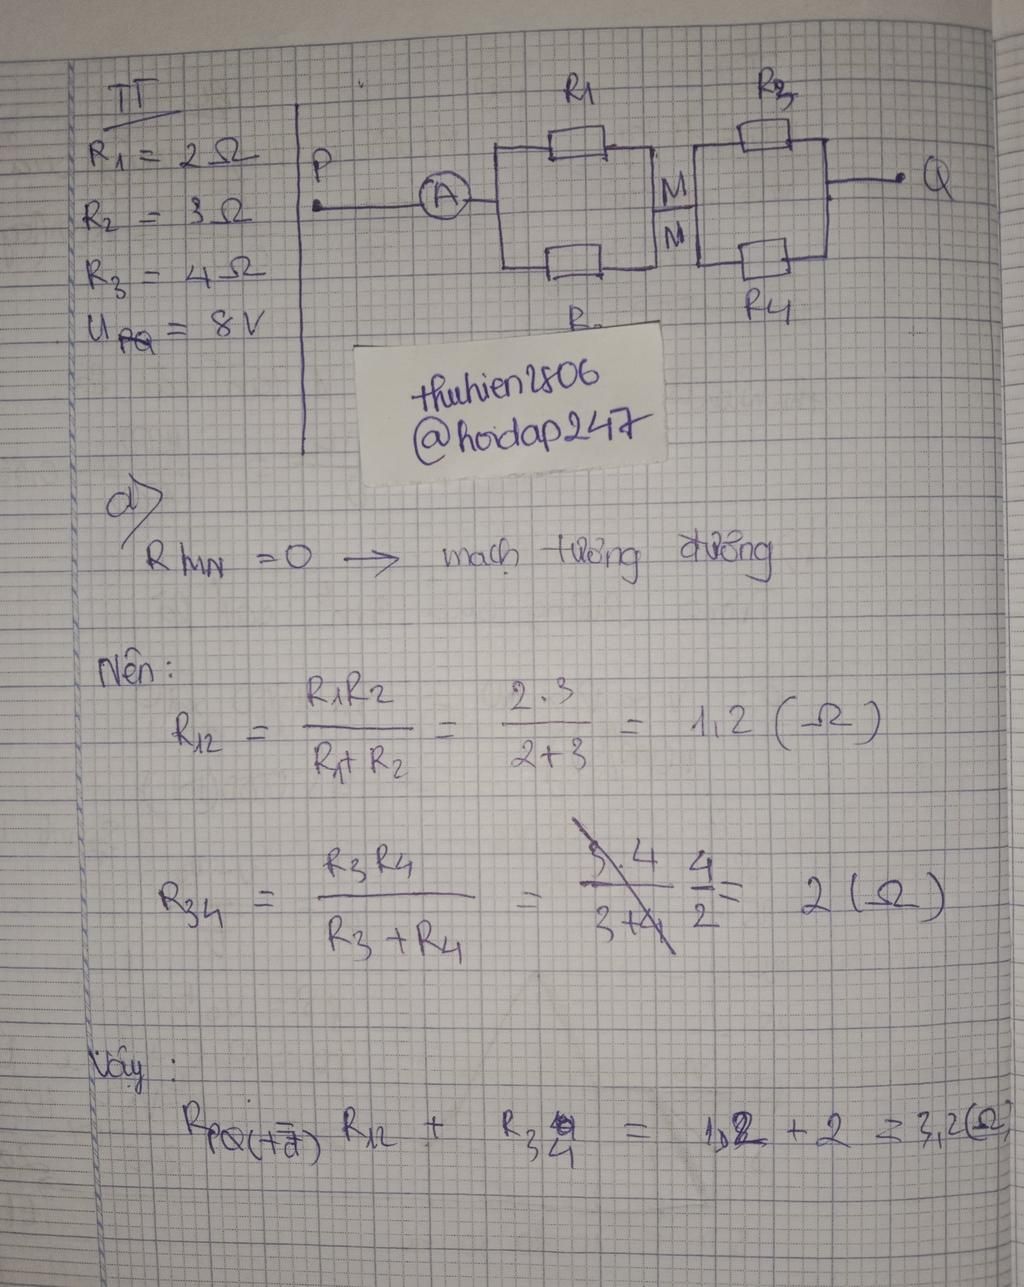 TT
R1 = 2 Ω
R2 = 3 Ω
R3 = 4 Ω
UPQ = 8 V
P
A
R1
M
M
R3
R4
Q
thuhien2806
@hoidap247
a)
RMN = 0 → mạch tương đương
Nên:
R12 = R1R2 / R1+R2 = 2.3 / 2+3 = 1,2 (Ω)
R34 = R3R4 / R3+R4 = 3.4 / 3+4 4/2 = 2 (Ω)
Vậy:
RPQ(tđ) = R12 + R34 = 1,2 + 2 = 3,2(Ω)